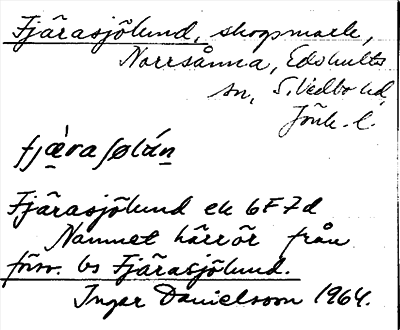 Fjärasjölund, skogsmark,
Norrsånna, Edshults
sn, S. Vedbo hd,
Jönk. l.
fjæ̀raʃølún
Fjärasjölund ek 6F7d
Namnet härrör från
försv. bs Fjärasjölund.
Ingar Danielsson 1964.